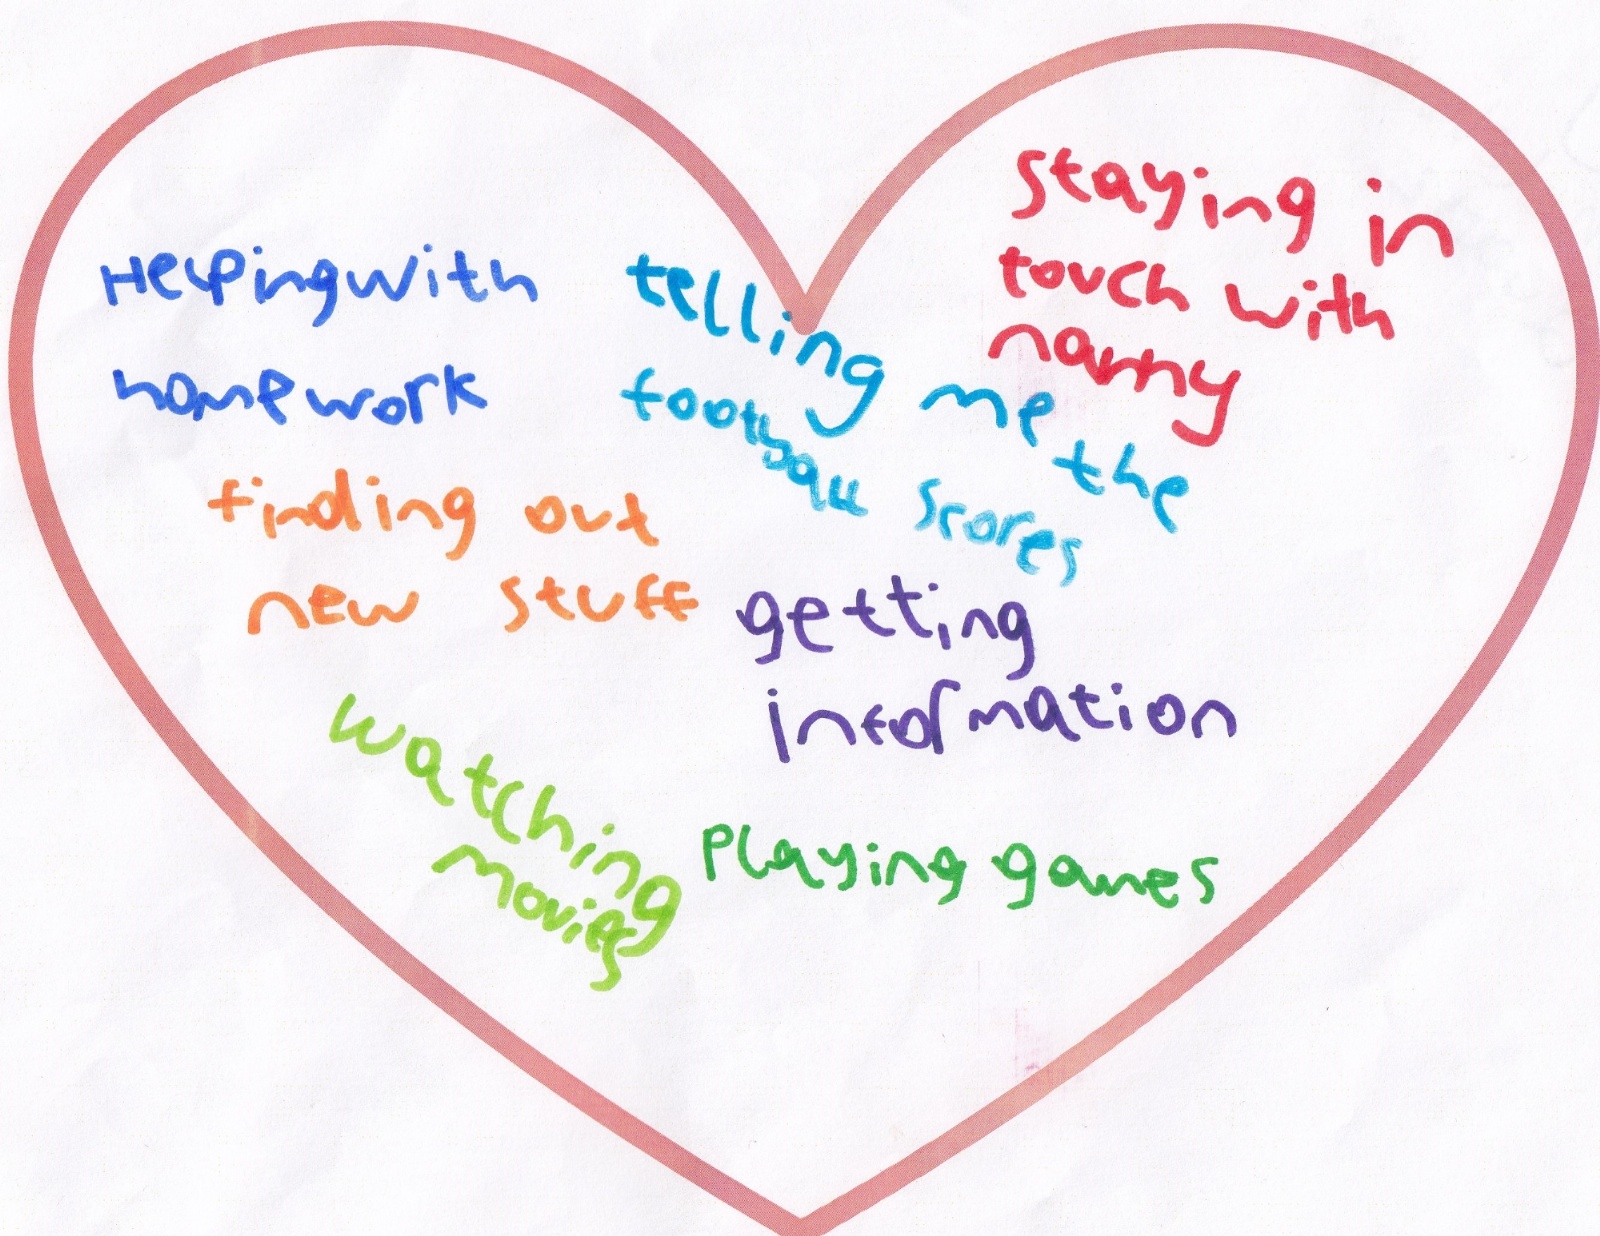 Helping with
homework
telling me the
football scores
staying in
touch with
nanny
finding out
new stuff
getting
information
watching
movies
Playing games